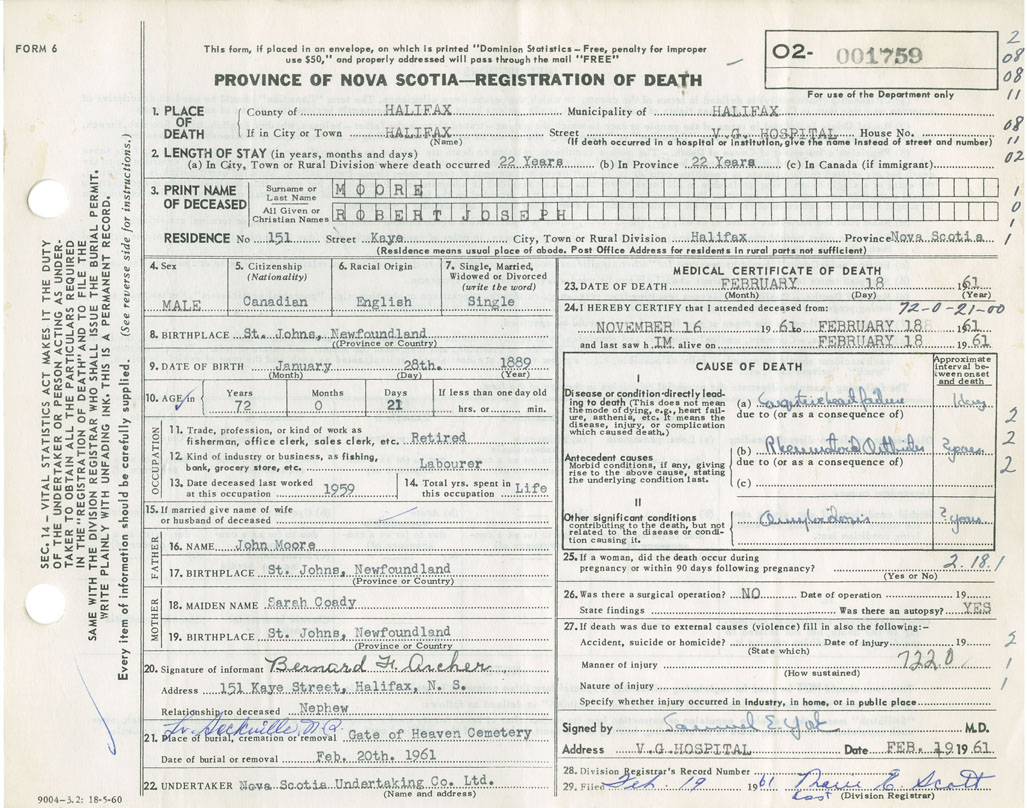 FORM 6
This form, if placed in an envelope, on which is printed "Dominion Statistics – Free, penalty for improper
use $50," and properly addressed will pass through the mail "FREE"
PROVINCE OF NOVA SCOTIA—REGISTRATION OF DEATH
O2- 001759
For use of the Department only
2
08
08
11
08
11
02
1
0
1
1
1. PLACE OF DEATH
County of HALIFAX Municipality of HALIFAX
If in City or Town HALIFAX Street V.G. HOSPITAL House No.
(Name) (If death occurred in a hospital or institution, give name instead of street and number)
2. LENGTH OF STAY (in years, months and days)
(a) In City, Town or Rural Division where death occurred 22 Years (b) In Province 22 Years (c) In Canada (if immigrant)
3. PRINT NAME OF DECEASED
Surname or Last Name MOORE
All Given or Christian Names ROBERT JOSEPH
RESIDENCE No 151 Street Kaye City, Town or Rural Division Halifax Province Nova Scotia
(Residence means usual place of abode. Post Office Address for residents in rural parts not sufficient)
4. Sex MALE
5. Citizenship (Nationality) Canadian
6. Racial Origin English
7. Single, Married, Widowed or Divorced (write the word) Single
8. BIRTHPLACE St. Johns, Newfoundland
(Province or Country)
9. DATE OF BIRTH January 28th. 1889
(Month) (Day) (Year)
10. AGE in Years 72 Months 0 Days 21 If less than one day old hrs. or min.
OCCUPATION
11. Trade, profession, or kind of work as
fisherman, office clerk, sales clerk, etc. Retired
12. Kind of industry or business, as fishing,
bank, grocery store, etc. Labourer
13. Date deceased last worked at this occupation 1959
14. Total yrs. spent in this occupation Life
15. If married give name of wife
or husband of deceased
FATHER
16. NAME John Moore
17. BIRTHPLACE St. Johns, Newfoundland
(Province or Country)
MOTHER
18. MAIDEN NAME Sarah Coady
19. BIRTHPLACE St. Johns, Newfoundland
(Province or Country)
20. Signature of informant Bernard F. Archer
Address 151 Kaye Street, Halifax, N. S.
Relationship to deceased Nephew
Lr. Sackville, N.S.
21. Place of burial, cremation or removal Gate of Heaven Cemetery
Date of burial or removal Feb. 20th. 1961
22. UNDERTAKER Nova Scotia Undertaking Co. Ltd.
(Name and address)
9004—3.2: 18-5-60
MEDICAL CERTIFICATE OF DEATH
23. DATE OF DEATH FEBRUARY 18 1961
(Month) (Day) (Year)
24. I HEREBY CERTIFY that I attended deceased from: 72-0-21-00
NOVEMBER 16 1961 to FEBRUARY 18 1961
and last saw h IM alive on FEBRUARY 18 1961
CAUSE OF DEATH
Approximate interval between onset and death
I
Disease or condition directly leading to death (This does not mean the mode of dying, e.g., heart failure, asthenia, etc. It means the disease, injury, or complication which caused death.)
(a) Congestive heart failure 1 day
due to (or as a consequence of)
Antecedent causes
Morbid conditions, if any, giving rise to the above cause, stating the underlying condition last.
(b) Rheumatoid Arthritis years
due to (or as a consequence of)
(c)
II
Other significant conditions
contributing to the death, but not related to the disease or condition causing it.
Amyloidosis ? years
2
2
2
25. If a woman, did the death occur during
pregnancy or within 90 days following pregnancy?
(Yes or No)
2.18.1
26. Was there a surgical operation? NO Date of operation 19
State findings Was there an autopsy? YES
27. If death was due to external causes (violence) fill in also the following:—
Accident, suicide or homicide? Date of injury 19
(State which)
Manner of injury 7220
(How sustained)
Nature of injury
Specify whether injury occurred in industry, in home, or in public place
2
1
1
Signed by Samuel E. M.D.
Address V.G.HOSPITAL Date FEB. 19 1961
28. Division Registrar's Record Number
29. Filed Feb. 19 1961 E Scott
(Division Registrar)
SEC. 14 – VITAL STATISTICS ACT MAKES IT THE DUTY
OF THE UNDERTAKER OR PERSON ACTING AS UNDER-
TAKER TO OBTAIN ALL THE PARTICULARS REQUIRED
IN THE "REGISTRATION OF DEATH" AND TO FILE THE
SAME WITH THE DIVISION REGISTRAR WHO SHALL ISSUE THE BURIAL PERMIT.
WRITE PLAINLY WITH UNFADING INK. THIS IS A PERMANENT RECORD.
Every item of information should be carefully supplied. (See reverse side for instructions.)